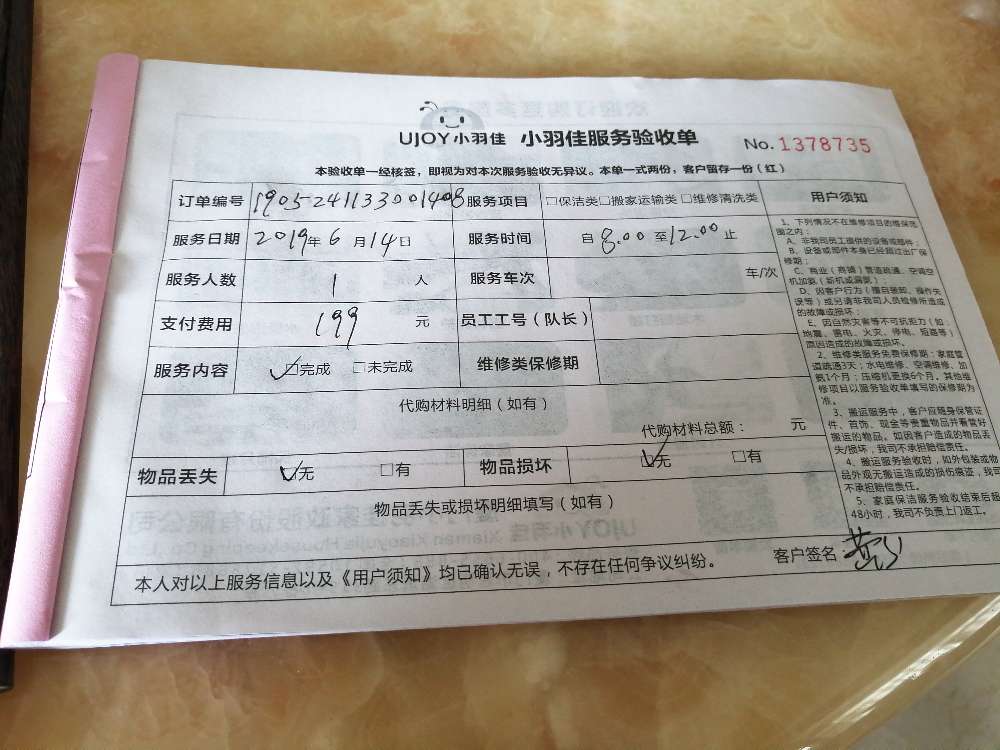 UJOY小羽佳 小羽佳服务验收单 No.1378735
本验收单一经核签，即视为对本次服务验收无异议。本单一式两份，客户留存一份（红）
订单编号 1905241133001408 服务项目 □保洁类□搬家运输类□维修清洗类
服务日期 2019年6月14日 服务时间 自8.00至12.00止
服务人数 1 人 服务车次 车/次
支付费用 199 元 员工工号（队长）
服务内容 ☑完成 □未完成 维修类保修期
代购材料明细（如有）
代购材料总额： 元
物品丢失 ☑无 □有 物品损坏 ☑无 □有
物品丢失或损坏明细填写（如有）
本人对以上服务信息以及《用户须知》均已确认无误，不存在任何争议纠纷。 客户签名
用户须知
1、下列情况不在维修项目的维保范
围之内：
A、非我司员工提供的设备或部件；
B、设备或部件本身已经超过出厂保
修期；
C、商业（商铺）管道疏通、空调空
机加氨（新机或漏氨）
D、因客户行为（擅自装卸、操作失
误等）或另请非我司人员检修所造成
的故障或损坏；
E、因自然灾害等不可抗拒力（如：
地震、雷电、火灾、停电、短路等）
原因造成的故障或损坏。
2、维修类服务免费保修期：家庭管
道疏通3天；水电维修、空调维修、加
氨1个月；压缩机更换6个月。其他维
修项目以服务验收单填写的保修期为
准。
3、搬运服务中，客户应随身保管证
件、首饰、现金等贵重物品并看管好
搬运的物品。如因客户造成的物品丢
失/损坏，我司不承担赔偿责任。
4、搬运服务验收时，如外包装或物
品外观无搬运造成的损伤痕迹，我司
不承担赔偿责任。
5、家庭保洁服务验收结束后超
48小时，我司不负责上门返工。